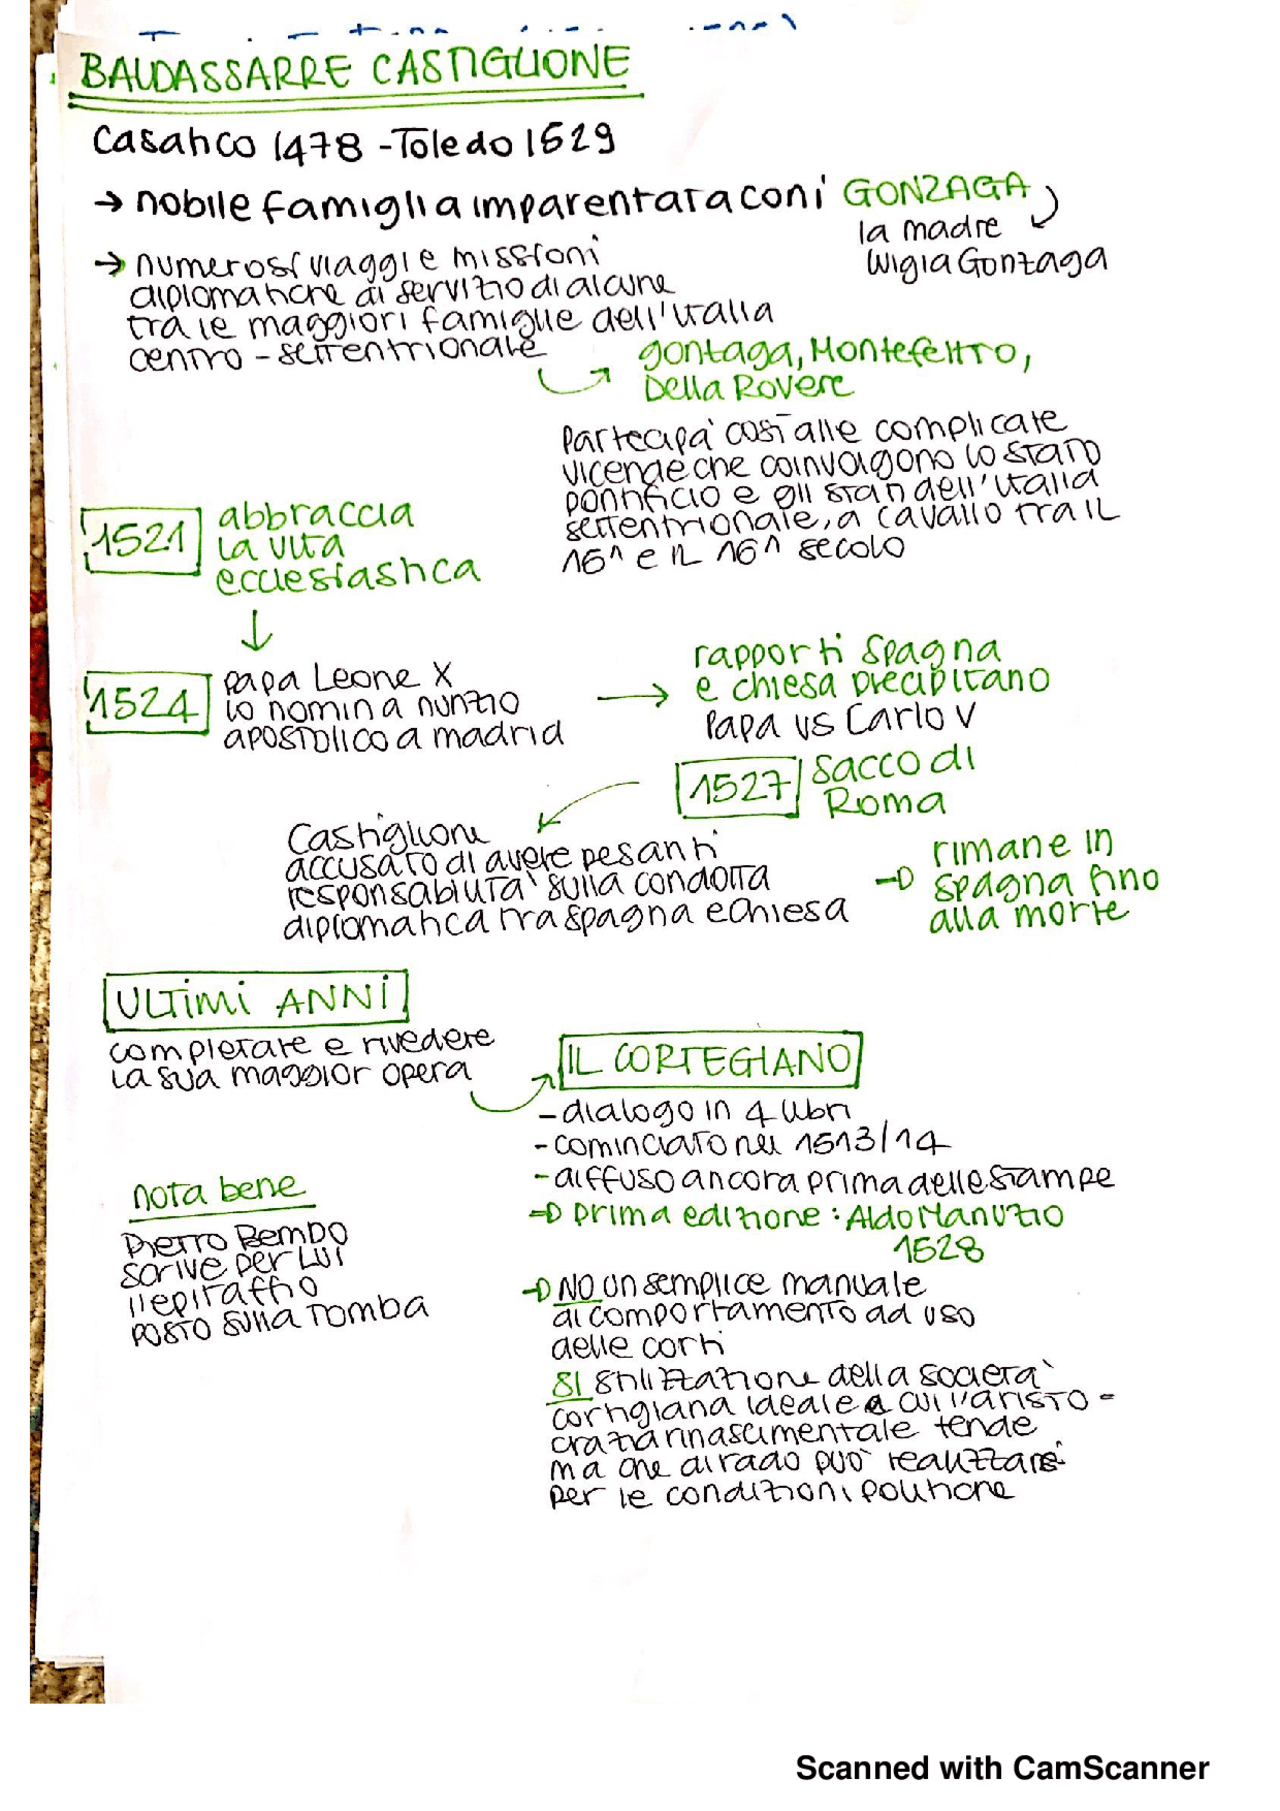 BALDASSARRE CASTIGLIONE
Casatico 1478 - Toledo 1529
→ nobile famiglia imparentata con i GONZAGA
la madre
Luigia Gonzaga
→ numerosi viaggi e missioni
diplomatiche al servizio di alcune
tra le maggiori famiglie dell'Italia
centro - settentrionale
gonzaga, Montefeltro,
Della Rovere
Partecipa' così alle complicate
vicende che coinvolgono lo stato
pontificio e gli stati dell'Italia
settentrionale, a cavallo tra il
15^ e IL 16^ secolo
1521 abbraccia
la vita
ecclesiastica
1524 papa Leone X
lo nomina nunzio
apostolico a madrid
→ rapporti Spagna
e chiesa precipitano
Papa vs Carlo V
1527 Sacco di
Roma
Castiglione
accusato di avere pesanti
responsabilita' sulla condotta
diplomatica tra spagna e chiesa
rimane in
spagna fino
alla morte
ULTIMI ANNI
completare e rivedere
la sua maggior opera
IL CORTEGIANO
- dialogo in 4 libri
- cominciato nel 1513/14
- diffuso ancora prima delle stampe
prima edizione: Aldo Manuzio
1528
NO un semplice manuale
di comportamento ad uso
delle corti
SI stilizzazione della societa'
cortigiana ideale a cui l'aristo-
crazia rinascimentale tende
ma che di rado puo' realizzare
per le condizioni politiche
nota bene
Pietro Bembo
scrive per lui
l'epitaffio
posto sulla tomba
Scanned with CamScanner